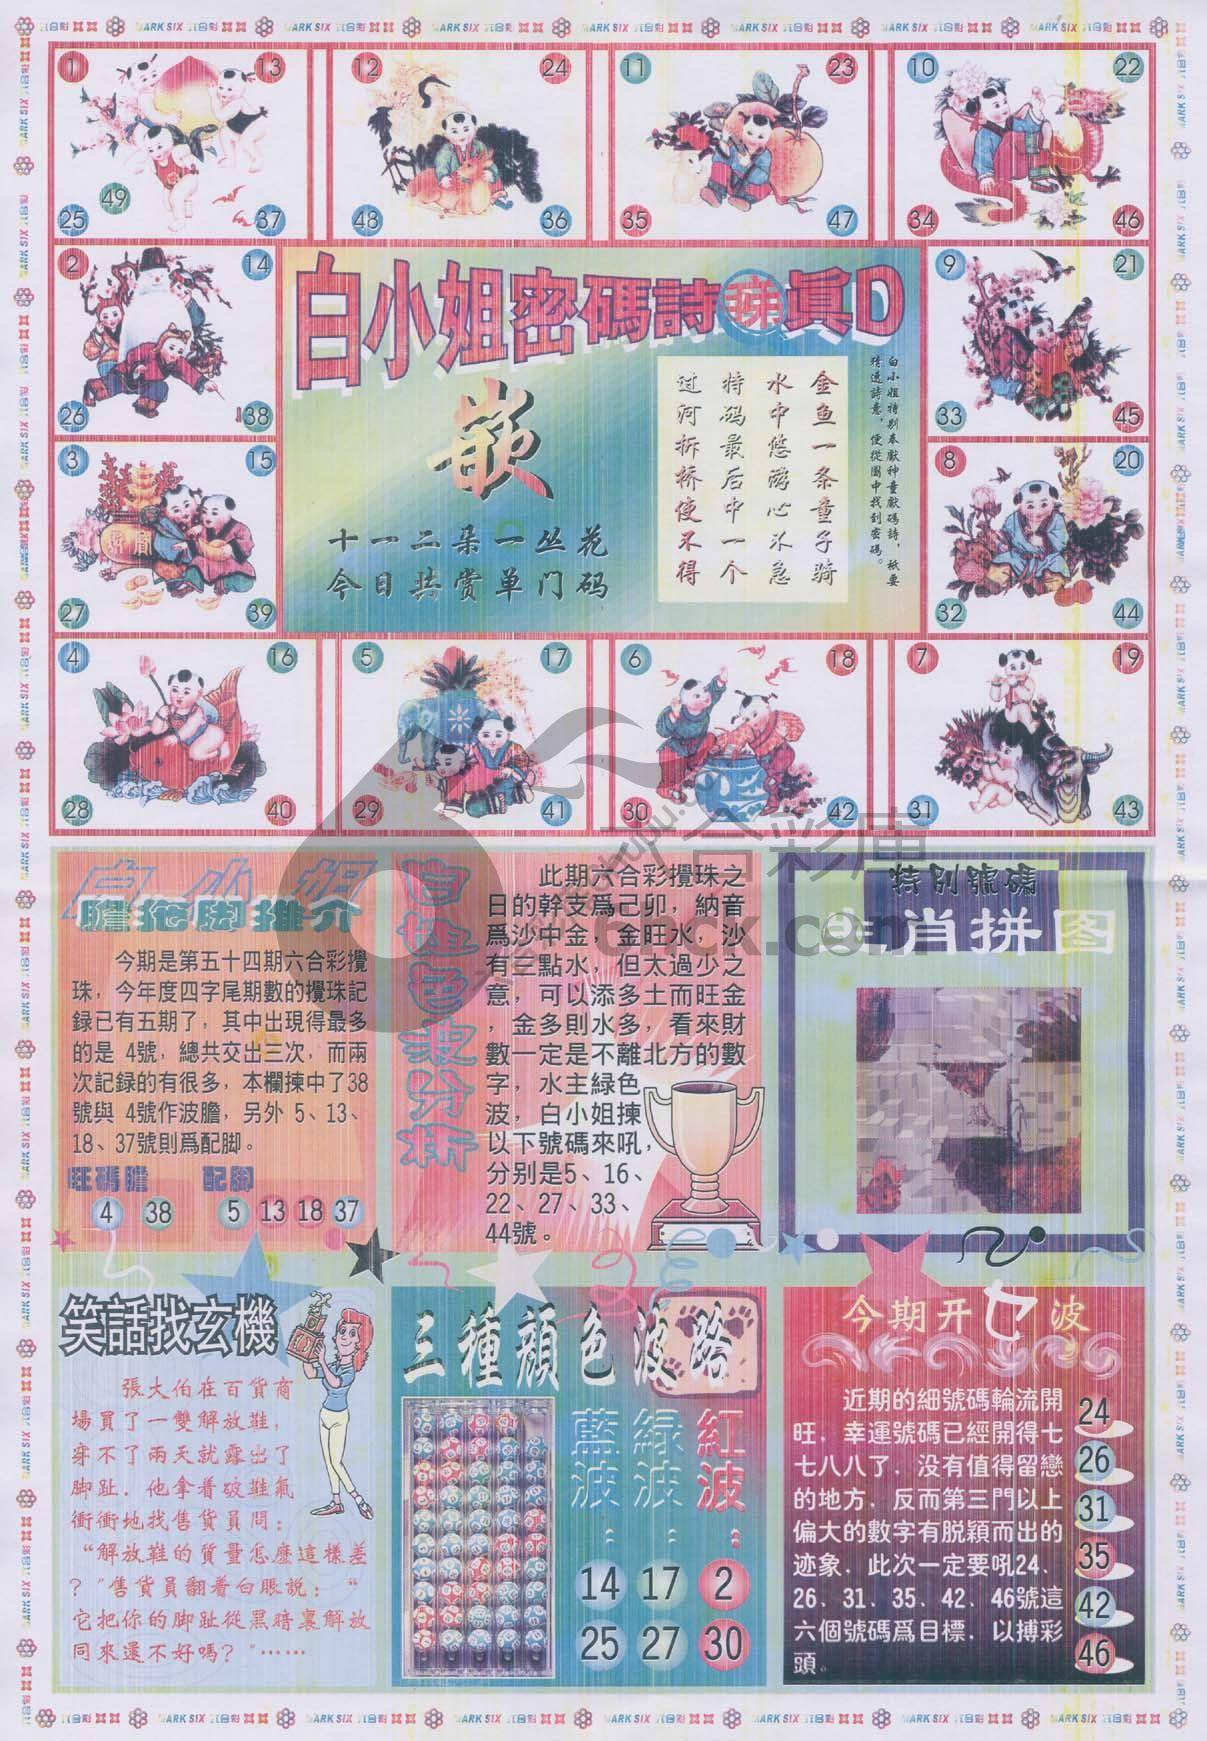 MARK SIX 六合彩
1 13 49 25 37
12 24 48 36
11 23 35 47
10 22 34 46
2 14 26 38
白小姐密碼詩 眞D
嵌
十一二朵一丛花
今日共赏单门码
白小姐特别奉獻神童獻碼詩，祇要
猜透詩意，便從圖中找到密碼。
金鱼一条童子骑
水中悠游心不急
特码最后中一个
过河拆桥使不得
9 21 33 45
3 15 27 39
8 20 32 44
4 16 28 40
5 17 29 41
6 18 30 42
7 19 31 43
六合彩库
白小姐
膽拖脚推介
今期是第五十四期六合彩攪
珠，今年度四字尾期數的攪珠記
録已有五期了，其中出現得最多
的是 4號，總共交出三次，而兩
次記録的有很多，本欄揀中了38
號與 4號作波膽，另外 5、13、
18、37號則爲配脚。
旺碼膽 配脚
4 38 5 13 18 37
白姐色波分析
此期六合彩攪珠之
日的幹支爲己卯，納音
爲沙中金，金旺水，沙
有一點水，但太過少之
意，可以添多土而旺金
，金多則水多，看來財
數一定是不離北方的數
字，水主緑色
波，白小姐揀
以下號碼來吼，
分别是5、16、
22、27、33、
44號。
特别號碼
生肖拼图
笑話找玄機
張大伯在百貨商
場買了一雙解放鞋，
穿不了兩天就露出了
脚趾．他拿着破鞋氣
衝衝地找售貨員問：
“解放鞋的質量怎麽這樣差
？”售貨員翻着白眼說：“
它把你的脚趾從黑暗裏解放
同來還不好嗎？”……
三種顔色波路
藍波： 14 25
緑波： 17 27
紅波： 2 30
今期开七波
近期的細號碼輪流開
旺．幸運號碼已經開得七
七八八了．没有值得留戀
的地方．反而第三門以上
偏大的數字有脱穎而出的
迹象．此次一定要吼24．
26．31．35．42．46號這
六個號碼爲目標．以搏彩
頭。
24
26
31
35
42
46